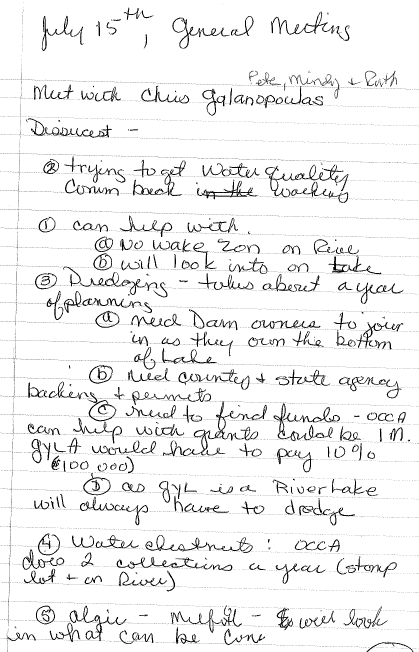 July 15th, General Meeting
Pete, Mindy + Ruth
Meet with Chris Galanopoulas
Disscusst -
② trying to get Water Quality
Comm back in the working
① can help with.
ⓐ No wake Zon on River
ⓑ will look into on Lake
③ Dredging - takes about a year
of planning
ⓐ need Dam owners to join
in as they own the bottom
of Lake
ⓑ need county + state agency
backing + permits
ⓒ need to find funds - OCCA
can help with grants could be 1 M.
GYLA would have to pay 10%
($100,000)
ⓓ as GYL is a River Lake
will always have to dredge
④ Water chestnuts: OCCA
does 2 collections a year (stomp
lot + on River)
⑤ algie - Milfoil - will look
in what can be done